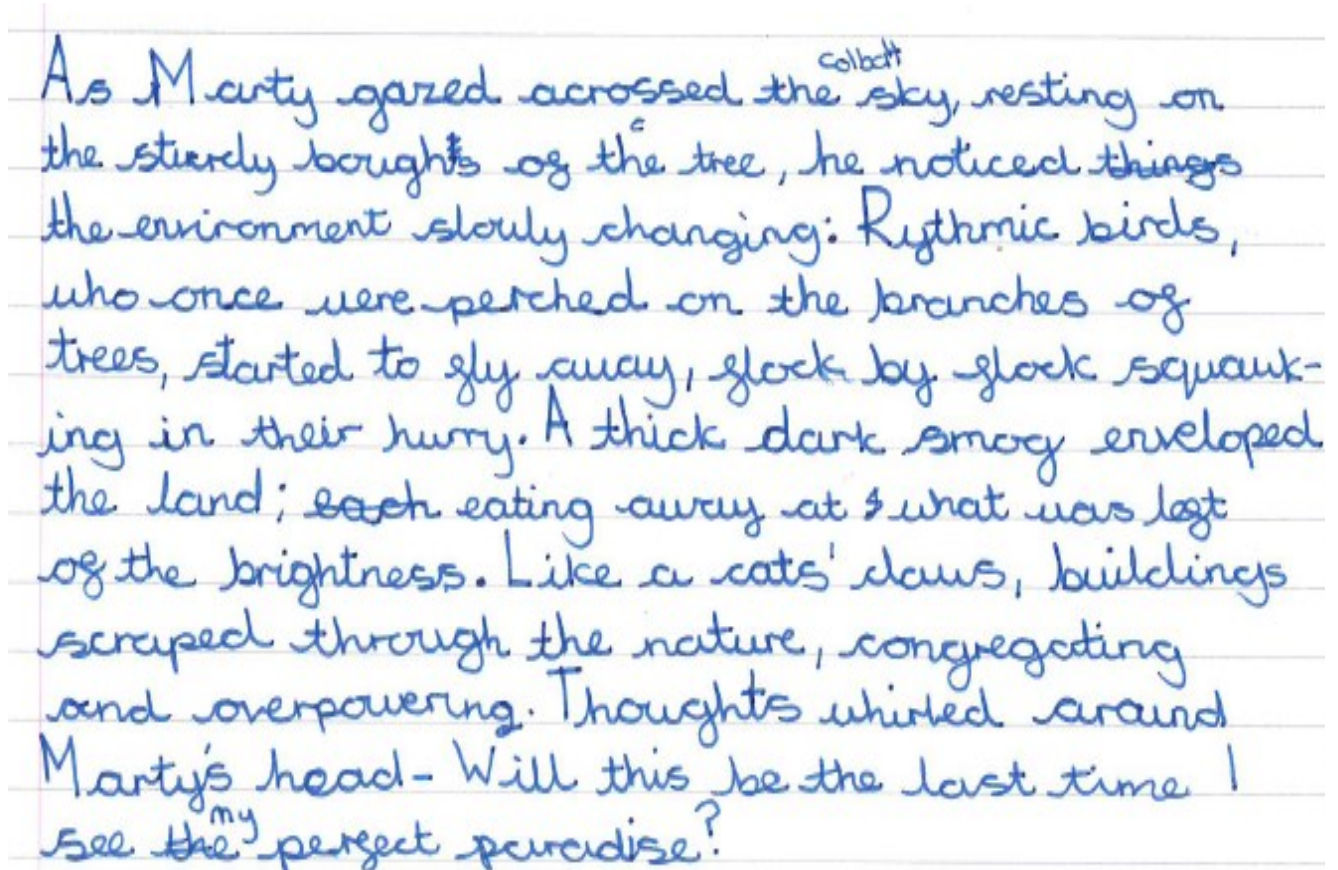 As Marty gazed acrossed the colbatt sky, resting on
the sturdy boughs of the tree, he noticed things
the environment slowly changing: Rythmic birds,
who once were perched on the branches of
trees, started to fly away, flock by flock squawk-
ing in their hurry. A thick dark smog enveloped
the land; each eating away at what was left
of the brightness. Like a cats' claws, buildings
scraped through the nature, congregating
and overpowering. Thoughts whirled around
Marty's head - Will this be the last time I
see the my perfect paradise?